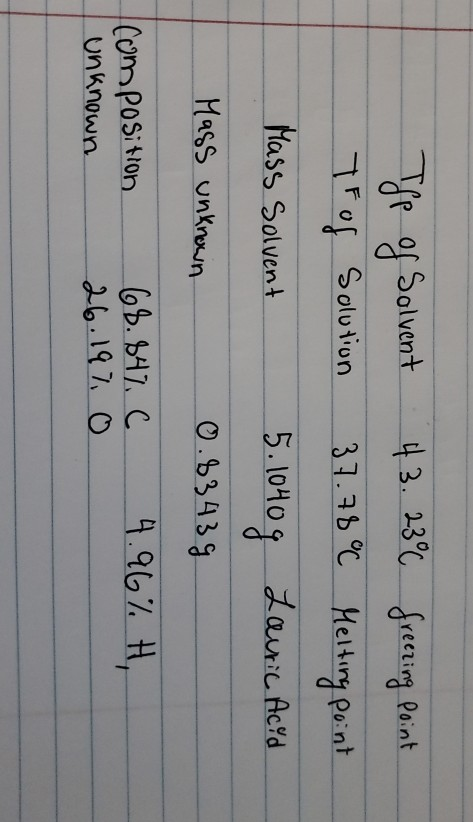 Tfp of Solvent 43.23°C freezing point
TF of Solution 37.78°C Melting point
Mass Solvent 5.1040g Lauric Acid
Mass unknown 0.8343g
Composition 68.84% C 4.96% H,
unknown 26.19% O